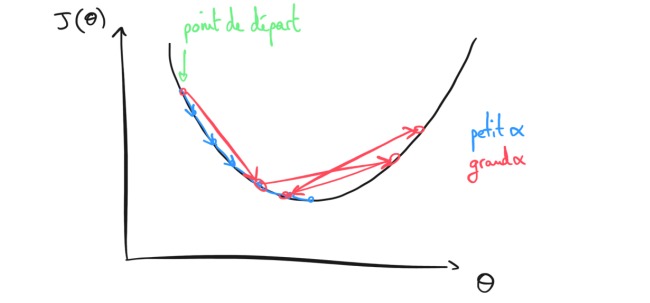 J(θ)
point de départ
petit α
grand α
θ